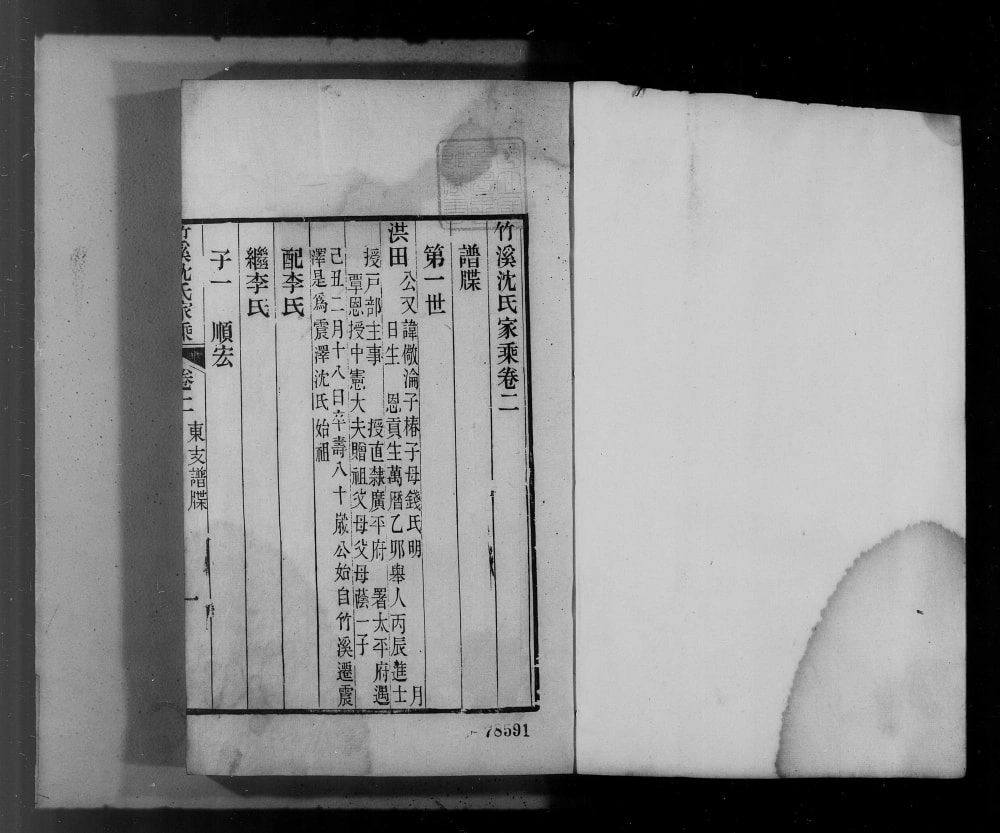 竹溪沈氏家乘卷二
譜牒
第一世
洪田
公又諱儆淪子椿子母錢氏明 月
日生 恩貢生萬曆乙卯舉人丙辰進士
授戶部主事 授直隸廣平府 署太平府遇
覃恩授中憲大夫贈祖父母父母蔭一子
己丑二月十八日卒壽八十歲公始自竹溪遷震
澤是爲震澤沈氏始祖
配李氏
繼李氏
子一 順宏
竹溪沈氏家乘 卷二 東支譜牒 一
78591